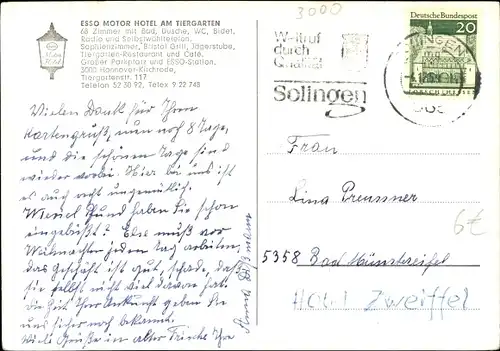 ESSO MOTOR HOTEL AM TIERGARTEN
68 Zimmer mit Bad, Dusche, WC, Bidet,
Radio und Selbstwähltelefon.
Saphirzimmer, Bristol Grill, Jägerstube,
Tiergarten-Restaurant und Café.
Großer Parkplatz und ESSO-Station.
3000 Hannover-Kirchrode,
Tiergartenstr. 117
Telefon 52 30 92, Telex 9 22 748
3000
Weltruf
durch
Qualität
Solingen
Deutsche Bundespost
20
Vielen Dank für Ihren
Kartengruß, nun noch 8 Tage,
und die schönen Tage sind
wieder vorbei. Hier bei uns ist
es auch recht ungemütlich.
Wieviel Pfund haben Sie schon
eingebüßt? Else muß vor
Weihnachten jeden Tag arbeiten,
das Geschäft ist gut, schade, daß
sie selbst nicht viel davon hat.
Die Zeit Ihrer Ankunft geben Sie
uns sicher noch bekannt.
Viele Grüße in alter Frische Ihre
Frau
Lina
5358 Bad Münstereifel
Hotel Zweiffel
6€